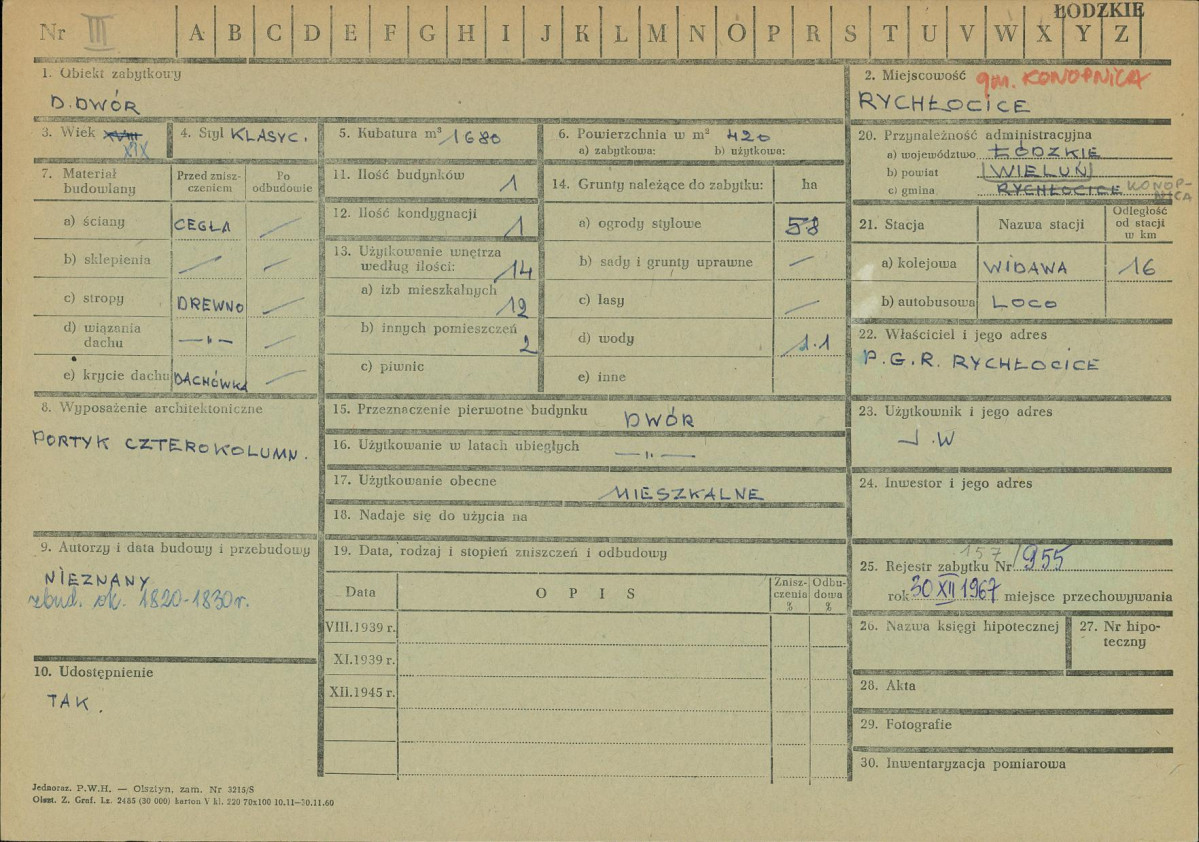 ŁODZKIE
Nr III A B C D E F G H I J K L M N O P R S T U V W X Y Z
1. Obiekt zabytkowy
D. DWÓR
2. Miejscowość gm. KONOPNICA
RYCHŁOCICE
3. Wiek XVIII
XIX
4. Styl KLASYC.
5. Kubatura m³ 1680
6. Powierzchnia w m² 420
a) zabytkowa: b) użytkowa:
7. Materiał budowlany
Przed zniszczeniem
Po odbudowie
a) ściany CEGŁA /
b) sklepienia / /
c) stropy DREWNO /
d) wiązania dachu —"— /
e) krycie dachu DACHÓWKA /
8. Wyposażenie architektoniczne
PORTYK CZTEROKOLUMN.
9. Autorzy i data budowy i przebudowy
NIEZNANY
zbud. ok. 1820-1830 r.
10. Udostępnienie
TAK.
11. Ilość budynków 1
12. Ilość kondygnacji 1
13. Użytkowanie wnętrza
według ilości: 14
a) izb mieszkalnych 12
b) innych pomieszczeń 2
c) piwnic
14. Grunty należące do zabytku: ha
a) ogrody stylowe 58
b) sady i grunty uprawne —
c) lasy —
d) wody 1.1
e) inne
15. Przeznaczenie pierwotne budynku DWÓR
16. Użytkowanie w latach ubiegłych —"—
17. Użytkowanie obecne MIESZKALNE
18. Nadaje się do użycia na
19. Data, rodzaj i stopień zniszczeń i odbudowy
Data OPIS Zniszczenia % Odbudowa %
VIII.1939 r.
XI.1939 r.
XII.1945 r.
20. Przynależność administracyjna
a) województwo ŁÓDZKIE
b) powiat WIELUŃ
c) gmina RYCHŁOCICE KONOPNICA
21. Stacja Nazwa stacji Odległość od stacji w km
a) kolejowa WIDAWA 16
b) autobusowa LOCO
22. Właściciel i jego adres
P.G.R. RYCHŁOCICE
23. Użytkownik i jego adres
J.W
24. Inwestor i jego adres
157
25. Rejestr zabytku Nr 955
rok 30 XII 1967 miejsce przechowywania
26. Nazwa księgi hipotecznej
27. Nr hipoteczny
28. Akta
29. Fotografie
30. Inwentaryzacja pomiarowa
Jednoraz. P.W.H. — Olsztyn, zam. Nr 3215/S
Olszt. Z. Graf. Lz. 2485 (30 000) karton V kl. 220 70x100 10.11—30.11.60